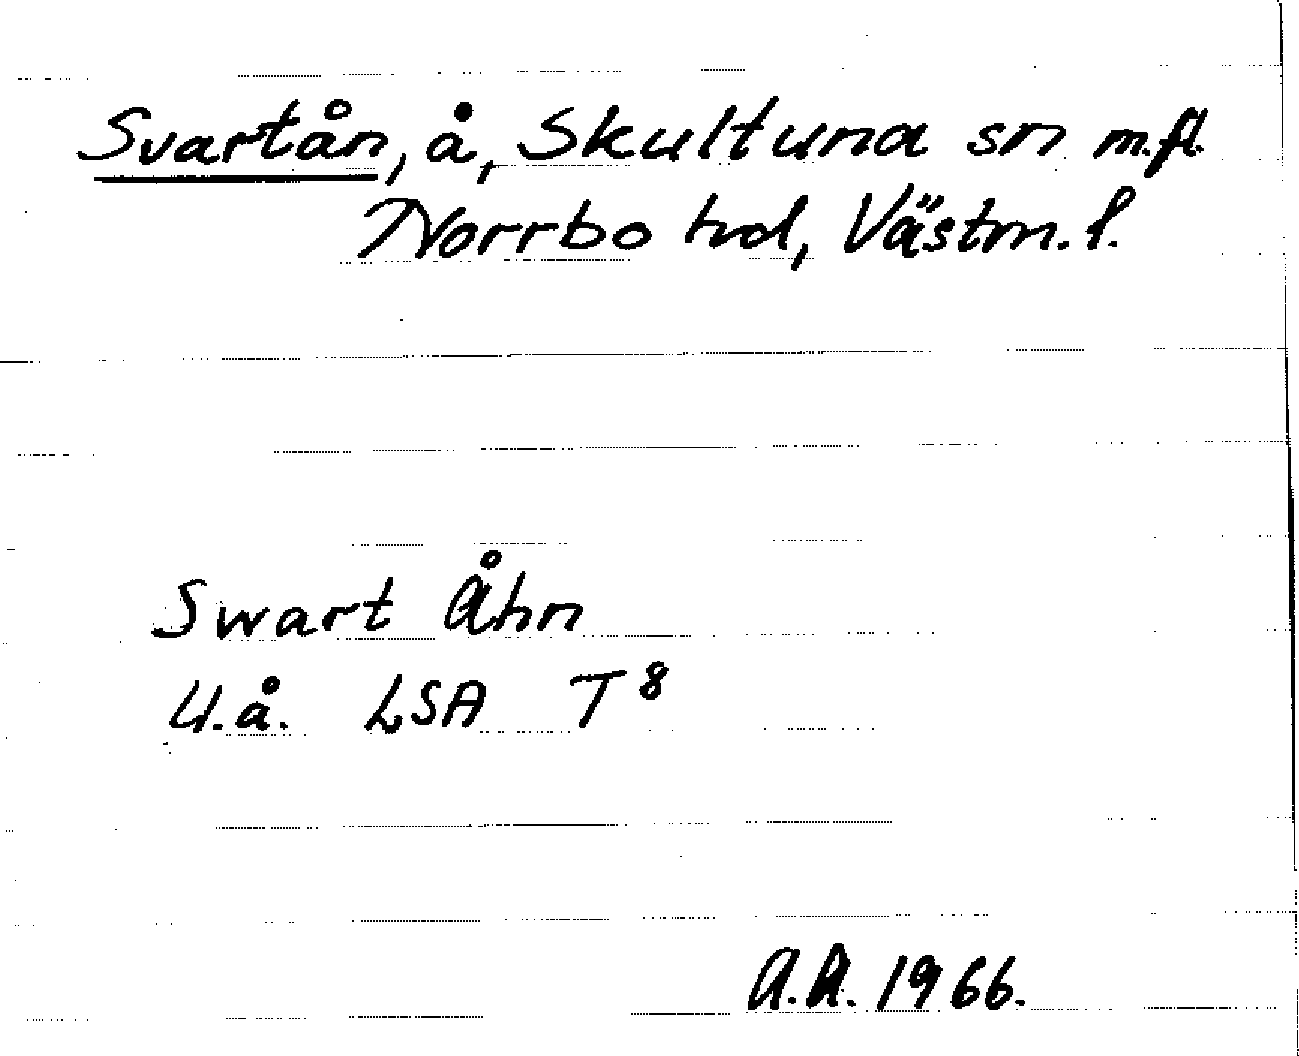 Svartån, å, Skultuna sn m.fl.
Norrbo hd, Västm. l.
Swart Åhn
U.å. LSA T 8
A.A. 1966.